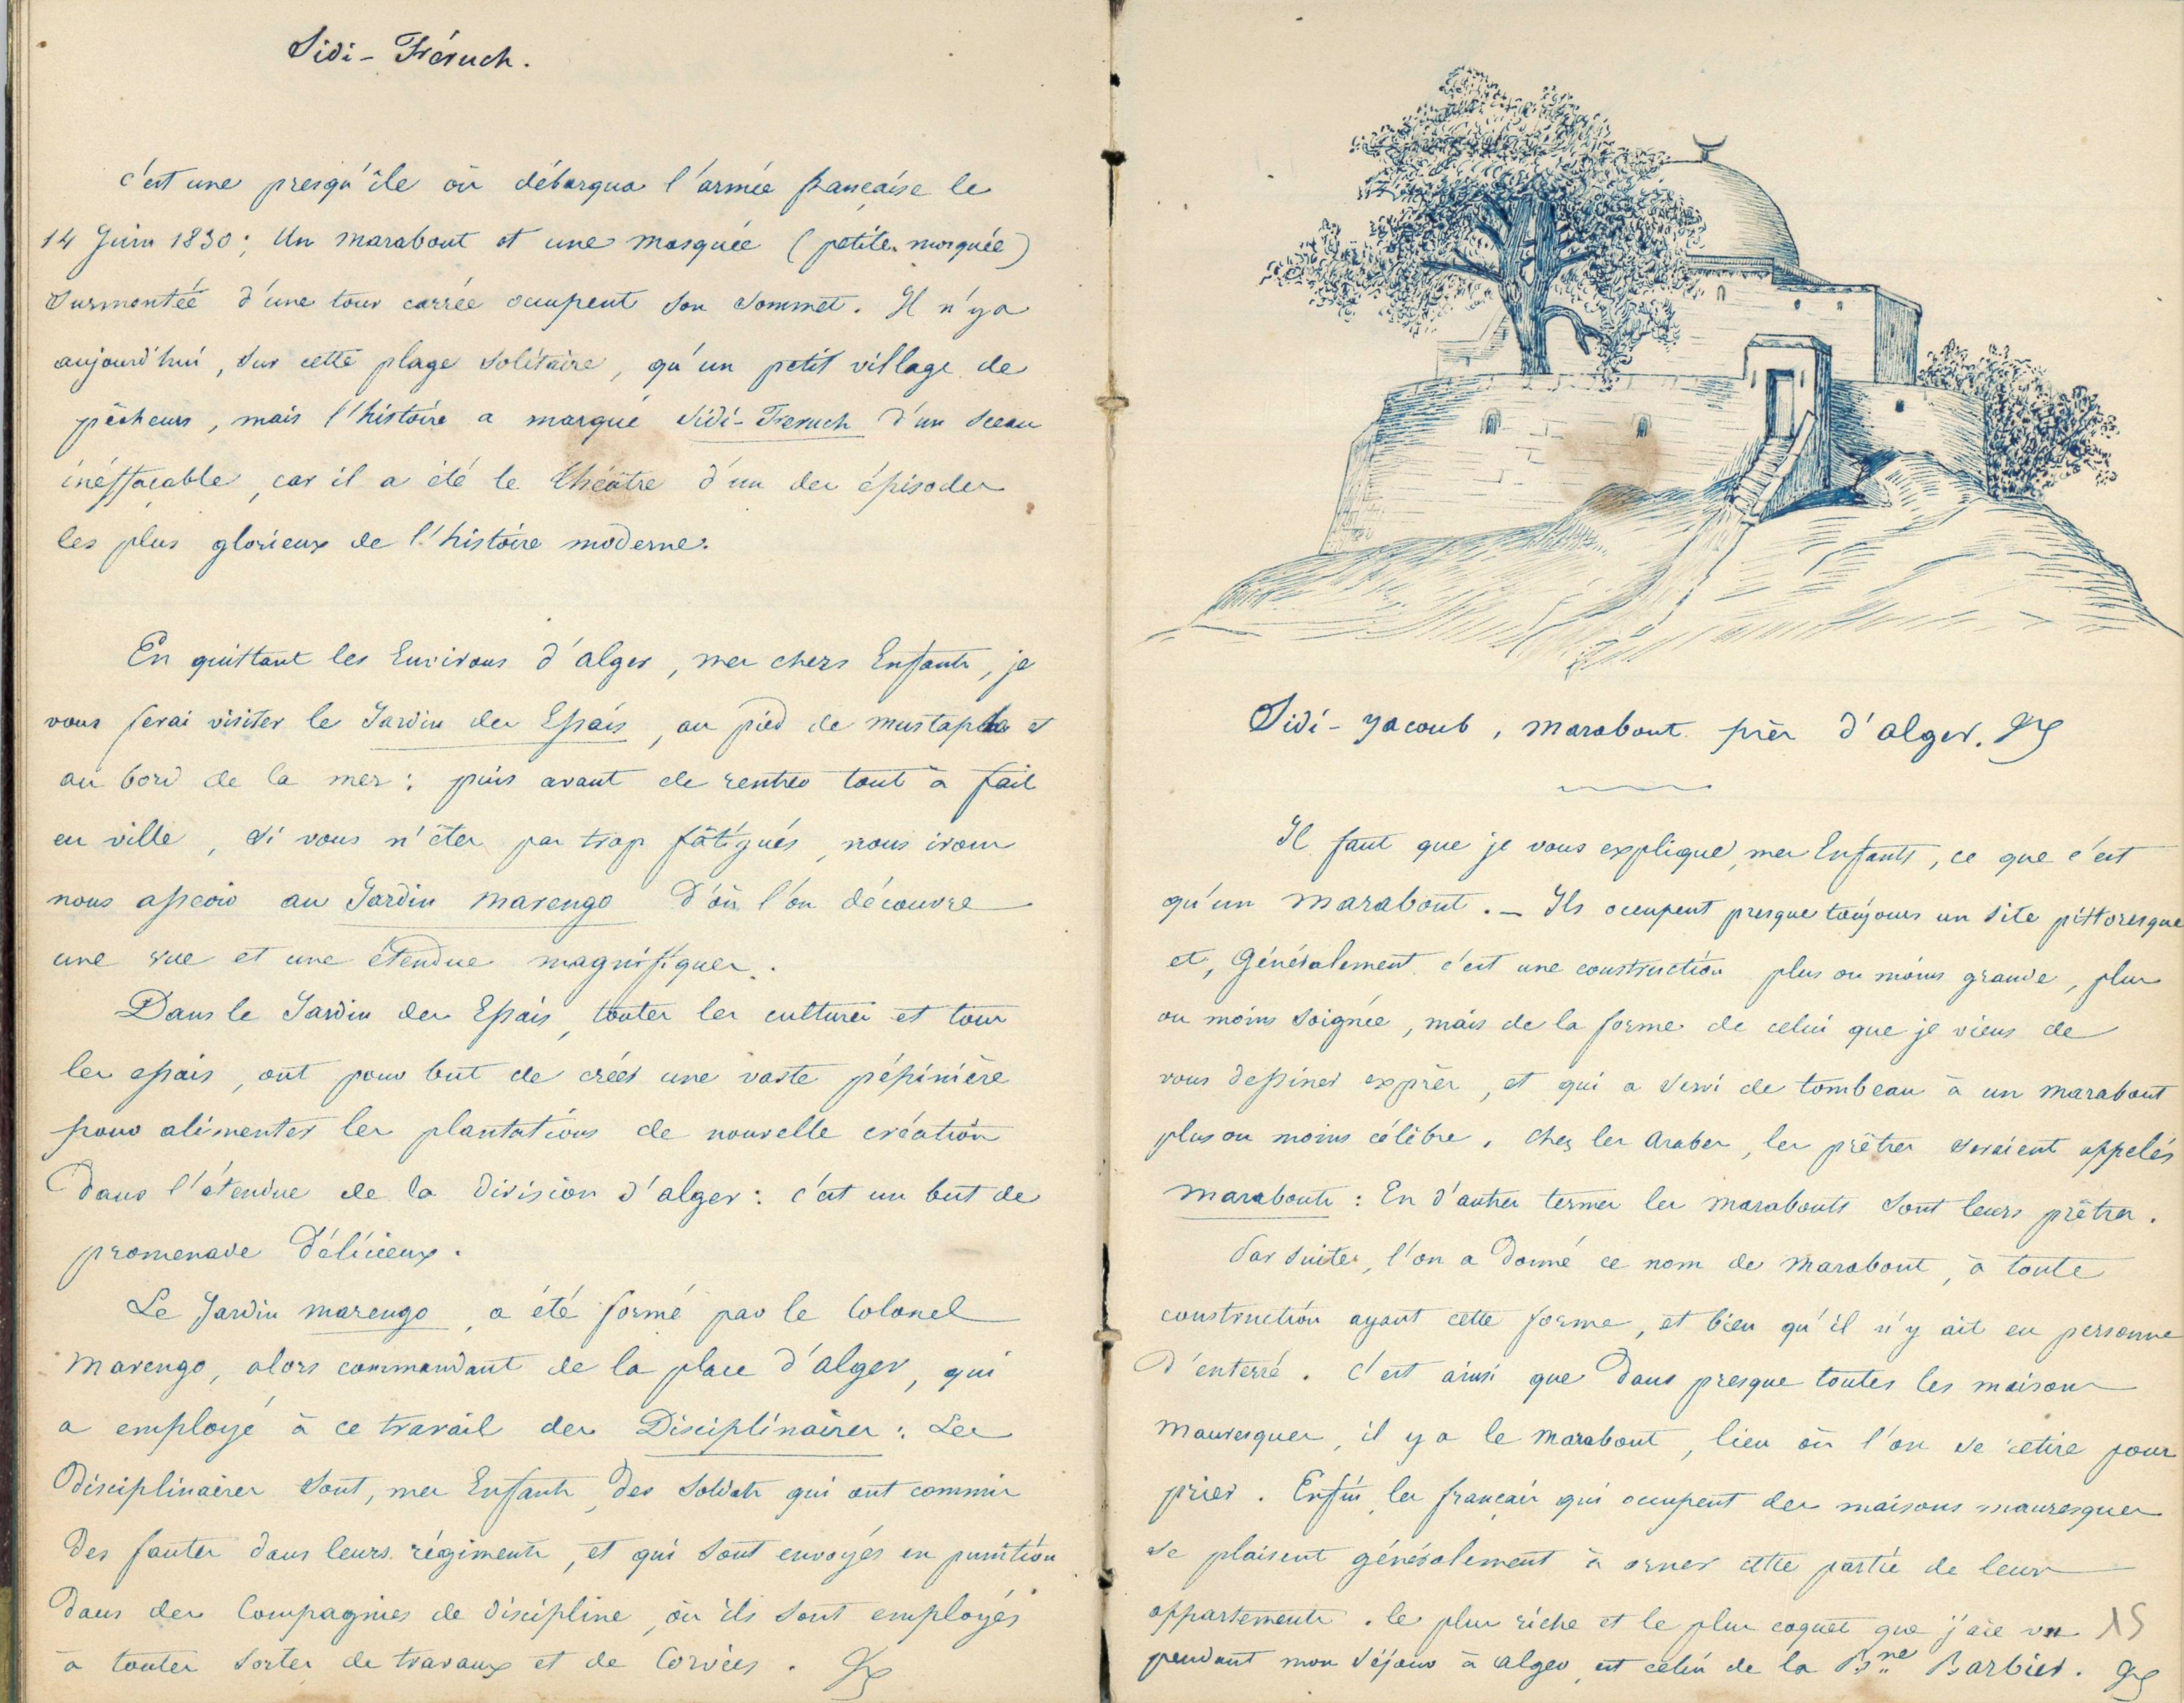 Sidi-Fréruch.
c'est une presqu'île où débarqua l'armée française le
14 Juin 1830; Un marabout et une mosquée (petite mosquée)
surmontée d'une tour carrée occupent son sommet. Il n'y a
aujourd'hui, sur cette plage solitaire, qu'un petit village de
pêcheurs, mais l'histoire a marqué Sidi-Freruch d'un sceau
inéffaçable, car il a été le théâtre d'un des épisodes
les plus glorieux de l'histoire moderne.
En quittant les Environs d'alger, mes chers Enfants, je
vous ferai visiter le Jardin des Essais, au pied de mustapha et
au bord de la mer: puis avant de rentrer tout à fait
en ville, si vous n'êtes pas trop fâtigués, nous irons
nous asseoir au Jardin marengo d'où l'on découvre
une vue et une étendue magnifiques.
Dans le Jardin des Essais, toutes les cultures et tous
les essais, ont pour but de créer une vaste pépinière
pour alimenter les plantations de nouvelle création
dans l'étendue de la division d'alger: c'est un but de
promenade délicieux.
Le Jardin marengo, a été formé par le Colonel
marengo, alors commandant de la place d'alger, qui
a employé à ce travail des Disciplinaires: Les
disciplinaires sont, mes Enfants, des soldats qui ont commis
des fautes dans leurs régiments, et qui sont envoyés en punition
dans des Compagnies de discipline, où ils sont employés
à toutes sortes de travaux et de Corvées.
Sidi-yacoub, marabout près d'alger.
Il faut que je vous explique, mes Enfants, ce que c'est
qu'un marabout. — Ils occupent presque toujours un site pittoresque
et, Généralement c'est une construction plus ou moins grande, plus
ou moins soignée, mais de la forme de celui que je viens de
vous dessiner exprès, et qui a servi de tombeau à un marabout
plus ou moins célèbre. Chez les Arabes, les prêtres seraient appelés
marabouts: En d'autres termes les marabouts sont leurs prêtres.
Par suite, l'on a donné ce nom de marabout, à toute
construction ayant cette forme, et bien qu'il n'y ait eu personne
d'enterré. C'est ainsi que dans presque toutes les maisons
mauresques, il y a le marabout, lieu où l'on se retire pour
prier. Enfin, les français qui occupent des maisons mauresques
se plaisent généralement à orner cette partie de leurs
appartements. le plus riche et le plus coquet que j'aie vu 15
pendant mon séjour à alger, est celui de la Bne Barbier.